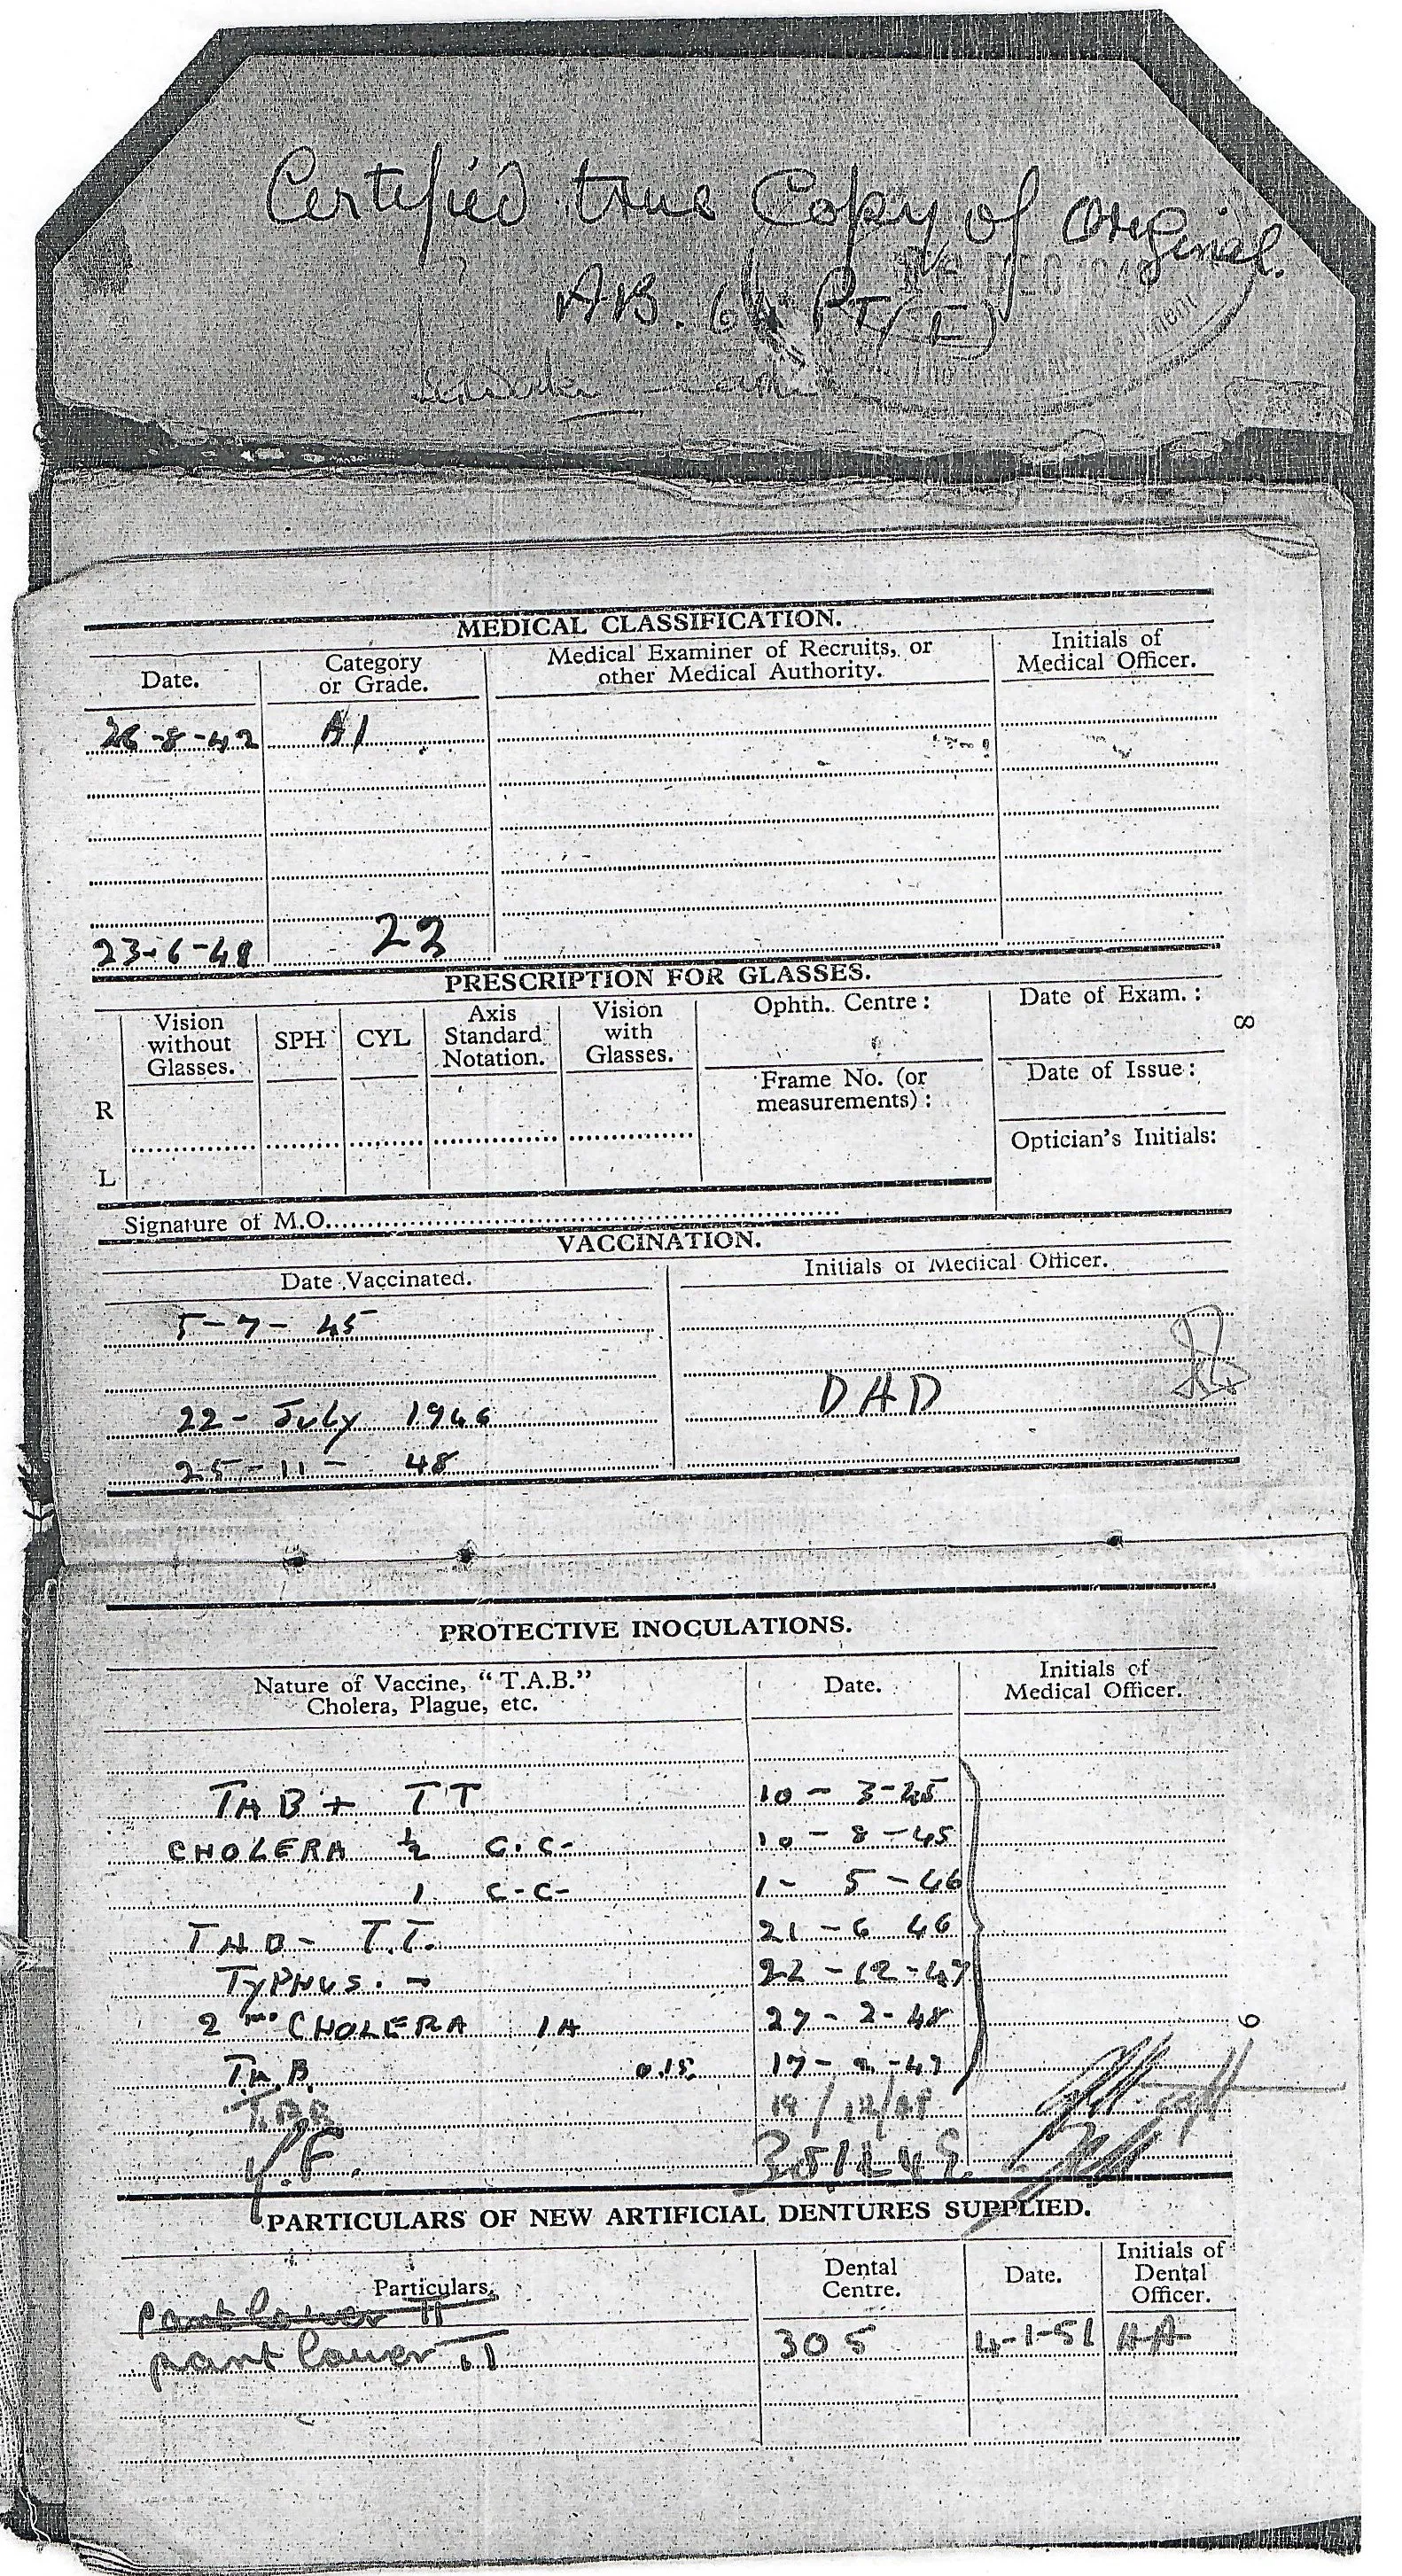 Certified true Copy of Original.
AB. 64 PT (I)
DEC 194
MEDICAL CLASSIFICATION.
Date. Category or Grade. Medical Examiner of Recruits, or other Medical Authority. Initials of Medical Officer.
26-8-42 A1
23-6-48 22
PRESCRIPTION FOR GLASSES.
Vision without Glasses. SPH CYL Axis Standard Notation. Vision with Glasses. Ophth. Centre: Date of Exam.:
8
Frame No. (or measurements): Date of Issue:
R
Optician's Initials:
L
Signature of M.O.
VACCINATION.
Date Vaccinated. Initials of Medical Officer.
5-7-45
22-July 1946 DAD
25-11-48
PROTECTIVE INOCULATIONS.
Nature of Vaccine, "T.A.B." Cholera, Plague, etc. Date. Initials of Medical Officer.
TAB + TT 10-3-45
CHOLERA ½ C.C- 10-8-45
1 C-C- 1-5-46
TAB- T.T. 21-6 46
TYPHUS. - 22-12-47
2nd CHOLERA 1A 27-2-48
9
T.A.B. 0.15
TAB 19/12/48
Y.F.
PARTICULARS OF NEW ARTIFICIAL DENTURES SUPPLIED.
Particulars. Dental Centre. Date. Initials of Dental Officer.
part lower
part lower 305 4-1-51 HA